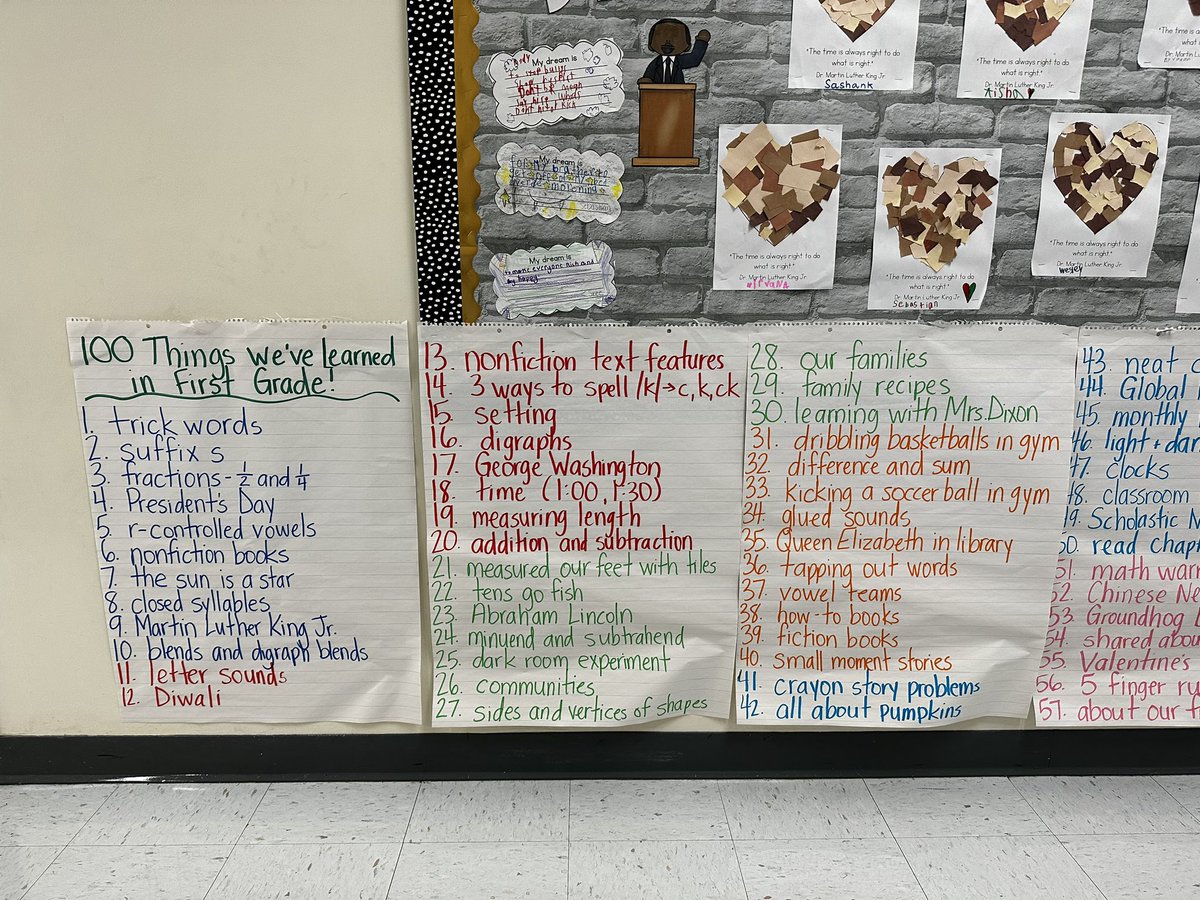 My dream is
to stop bullys
Show respect
Dont be mean
Say nice words
Dont hit or kick
My dream is
for my brother to
My dream is
to make everyone rich and
my happy.
"The time is always right to do
what is right."
Dr. Martin Luther King Jr.
Sashank
"The time is always right to do
what is right."
Dr. Martin Luther King Jr.
Aisha
"The time is always right to do
what is right."
Dr. Martin Luther King Jr.
nirvana
"The time is always right to do
what is right."
Dr. Martin Luther King Jr.
Sebastian
"The time is always right to do
what is right."
Dr. Martin Luther King Jr.
Wesley
"The time is always right to
what is right."
Dr. Martin Luther King
100 Things we've learned
in First Grade!
1. trick words
2. suffix s
3. fractions - 1/2 and 1/4
4. President's Day
5. r-controlled vowels
6. nonfiction books
7. the sun is a star
8. closed syllables
9. Martin Luther King Jr.
10. blends and digraph blends
11. letter sounds
12. Diwali
13. nonfiction text features
14. 3 ways to spell /k/→c, k, ck
15. setting
16. digraphs
17. George Washington
18. time (1:00, 1:30)
19. measuring length
20. addition and subtraction
21. measured our feet with tiles
22. tens go fish
23. Abraham Lincoln
24. minuend and subtrahend
25. dark room experiment
26. communities
27. sides and vertices of shapes
28. our families
29. family recipes
30. learning with Mrs. Dixon
31. dribbling basketballs in gym
32. difference and sum
33. kicking a soccer ball in gym
34. glued sounds
35. Queen Elizabeth in library
36. tapping out words
37. vowel teams
38. how-to books
39. fiction books
40. small moment stories
41. crayon story problems
42. all about pumpkins
43. neat
44. Global
45. monthly
46. light + dar
47. clocks
48. classroom
49. Scholastic N
50. read chap
51. math war
52. Chinese Ne
53. Groundhog
54. shared abou
55. Valentine's
56. 5 finger ru
57. about our